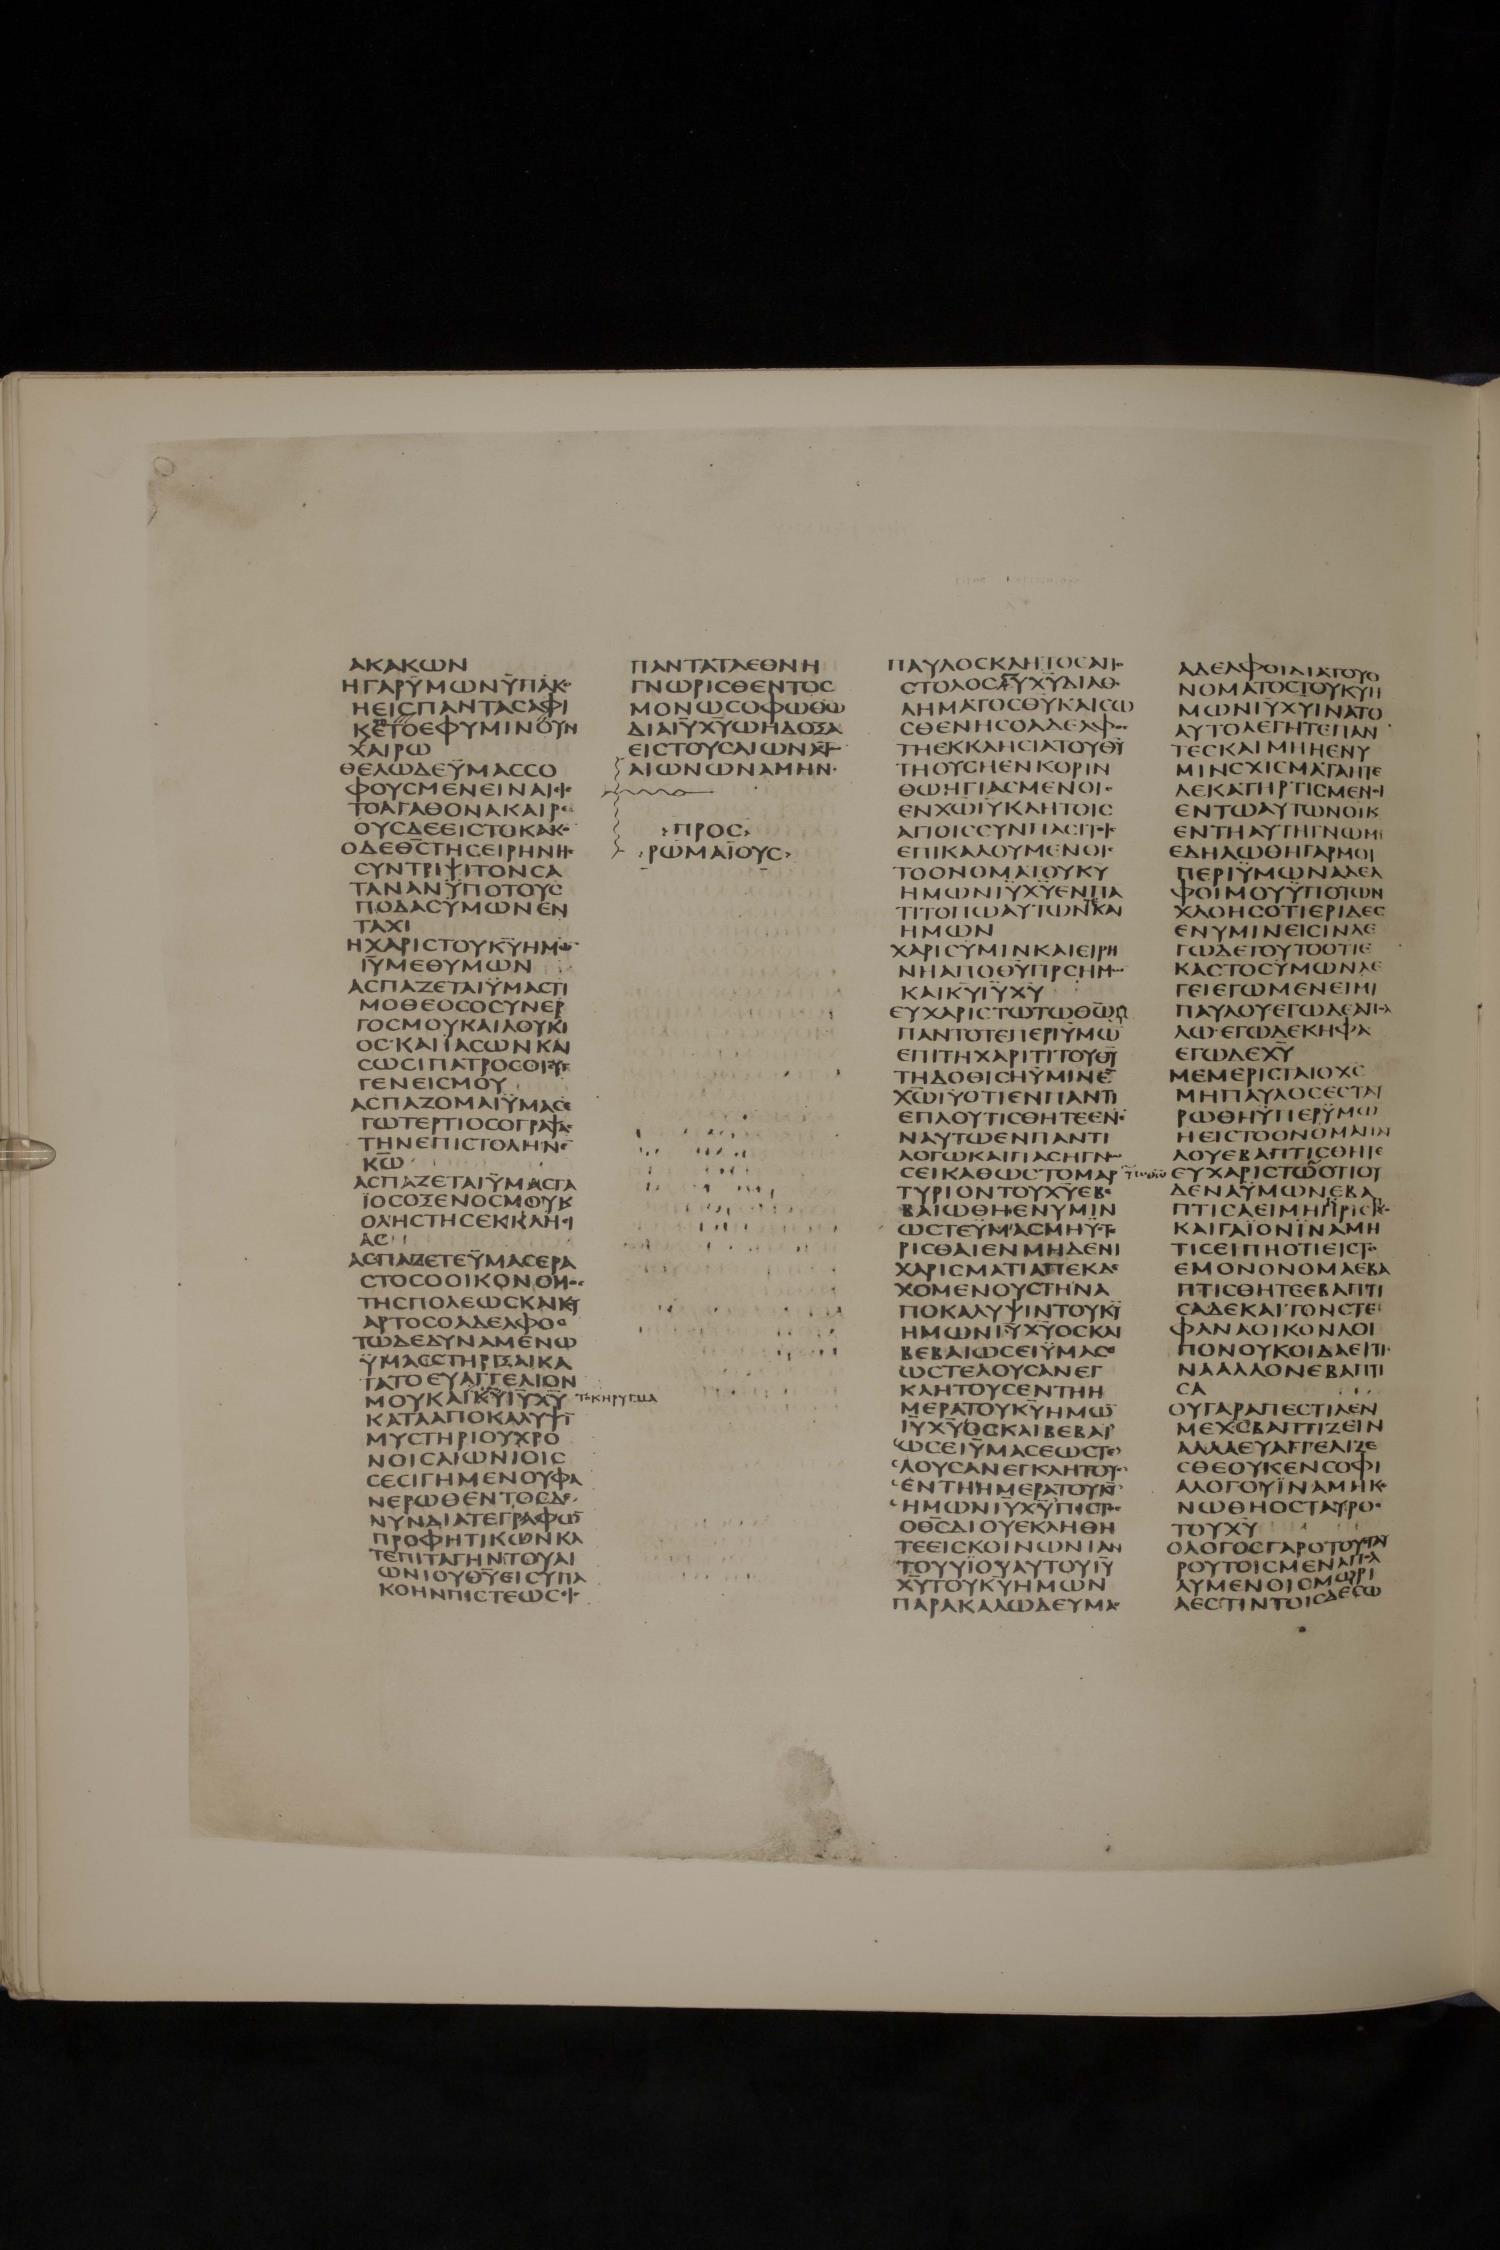 ΑΚΑΚΩΝ
ΗΓΑΡΫΜΩΝΫΠΑΚ
ΗΕΙΣΠΑΝΤΑΣΑΦΙ
ΚΕΤΟΕΦΥΜΙΝΟΥΝ
ΧΑΙΡΩ
ΘΕΛΩΔΕΫΜΑΣΣΟ
ΦΟΥΣΜΕΝΕΙΝΑΙ
ΤΟΑΓΑΘΟΝΑΚΑΙΡ
ΟΥΣΔΕΕΙΣΤΟΚΑΚ
ΟΔΕΘΣΤΗΣΕΙΡΗΝΗ
ΣΥΝΤΡΙΨΙΤΟΝΣΑ
ΤΑΝΑΝΫΠΟΤΟΥΣ
ΠΟΔΑΣΫΜΩΝΕΝ
ΤΑΧΙ
ΗΧΑΡΙΣΤΟΥΚΥΗΜΩ
ΙΥΜΕΘΥΜΩΝ
ΑΣΠΑΖΕΤΑΙΫΜΑΣΤΙ
ΜΟΘΕΟΣΟΣΥΝΕΡ
ΓΟΣΜΟΥΚΑΙΛΟΥΚΙ
ΟΣ·ΚΑΙΪΑΣΩΝΚΑΙ
ΣΩΣΙΠΑΤΡΟΣΟΙΣΥ
ΓΕΝΕΙΣΜΟΥ
ΑΣΠΑΖΟΜΑΙΫΜΑΣΕ
ΓΩΤΕΡΤΙΟΣΟΓΡΑΨΑ
ΤΗΝΕΠΙΣΤΟΛΗΝΕ
ΚΩ
ΑΣΠΑΖΕΤΑΙΫΜΑΣΓΑ
ΪΟΣΟΞΕΝΟΣΜΟΥΚ
ΟΛΗΣΤΗΣΕΚΚΛΗΙ
ΑΣ
ΑΣΠΑΖΕΤΕΫΜΑΣΕΡΑ
ΣΤΟΣΟΟΙΚΟΝΟΜ
ΤΗΣΠΟΛΕΩΣΚΑΙΚΥ
ΑΡΤΟΣΟΑΔΕΛΦΟΣ
ΤΩΔΕΔΥΝΑΜΕΝΩ
ΫΜΑΣΣΤΗΡΙΞΑΙΚΑ
ΤΑΤΟΕΥΑΓΓΕΛΙΟΝ
ΜΟΥΚΑΙΚΥΙΥΧΥ ΤΟΚΗΡΥΓΜΑ
ΚΑΤΑΑΠΟΚΑΛΥΨΙ
ΜΥΣΤΗΡΙΟΥΧΡΟ
ΝΟΙΣΑΙΩΝΙΟΙΣ
ΣΕΣΙΓΗΜΕΝΟΥΦΑ
ΝΕΡΩΘΕΝΤΟΣΔΕ
ΝΥΝΔΙΑΤΕΓΡΑΦΩ
ΠΡΟΦΗΤΙΚΩΝΚΑ
ΤΕΠΙΤΑΓΗΝΤΟΥΑΙ
ΩΝΙΟΥΘΥΕΙΣΥΠΑ
ΚΟΗΝΠΙΣΤΕΩΣ
ΠΑΝΤΑΤΑΕΘΝΗ
ΓΝΩΡΙΣΘΕΝΤΟΣ
ΜΟΝΩΣΟΦΩΘΩ
ΔΙΑΙΥΧΥΩΗΔΟΞΑ
ΕΙΣΤΟΥΣΑΙΩΝΑΣ
ΑΙΩΝΩΝΑΜΗΝ·
ΠΡΟΣ
ΡΩΜΑΙΟΥΣ
ΠΑΥΛΟΣΚΛΗΤΟΣΑΠ
ΣΤΟΛΟΣΙΥΧΥΔΙΑΘ
ΛΗΜΑΤΟΣΘΥΚΑΙΣΩ
ΣΘΕΝΗΣΟΑΔΕΛΦ
ΤΗΕΚΚΛΗΣΙΑΤΟΥΘΥ
ΤΗΟΥΣΗΕΝΚΟΡΙΝ
ΘΩΗΓΙΑΣΜΕΝΟΙ
ΕΝΧΩΙΥΚΛΗΤΟΙΣ
ΑΓΙΟΙΣΣΥΝΠΑΣΙ
ΕΠΙΚΑΛΟΥΜΕΝΟΙ
ΤΟΟΝΟΜΑΤΟΥΚΥ
ΗΜΩΝΙΥΧΥΕΝΠΑ
ΤΙΤΟΠΩΑΥΤΩΝΚΑΙ
ΗΜΩΝ
ΧΑΡΙΣΫΜΙΝΚΑΙΕΙΡΗ
ΝΗΑΠΟΘΥΠΡΣΗΜ
ΚΑΙΚΥΙΥΧΥ
ΕΥΧΑΡΙΣΤΩΤΩΘΩ
ΠΑΝΤΟΤΕΠΕΡΙΫΜΩ
ΕΠΙΤΗΧΑΡΙΤΙΤΟΥΘΥ
ΤΗΔΟΘΙΣΗΫΜΙΝΕ
ΧΩΙΥΟΤΙΕΝΠΑΝΤΙ
ΕΠΛΟΥΤΙΣΘΗΤΕΕΝ
ΝΑΥΤΩΕΝΠΑΝΤΙ
ΛΟΓΩΚΑΙΠΑΣΗΓΝ
ΣΕΙΚΑΘΩΣΤΟΜΑΡ
ΤΥΡΙΟΝΤΟΥΧΥΕΒ
ΒΑΙΩΘΗΕΝΥΜΙΝ
ΩΣΤΕΫΜΑΣΜΗΥΣΤ
ΡΙΣΘΑΙΕΝΜΗΔΕΝΙ
ΧΑΡΙΣΜΑΤΙΑΠΕΚΔΕ
ΧΟΜΕΝΟΥΣΤΗΝΑ
ΠΟΚΑΛΥΨΙΝΤΟΥΚΥ
ΗΜΩΝΙΥΧΥΟΣΚΑΙ
ΒΕΒΑΙΩΣΕΙΫΜΑΣΕ
ΩΣΤΕΛΟΥΣΑΝΕΓ
ΚΛΗΤΟΥΣΕΝΤΗΗ
ΜΕΡΑΤΟΥΚΥΗΜΩ
ΙΥΧΥΟΣΚΑΙΒΕΒΑΙ
ΩΣΕΙΫΜΑΣΕΩΣΤΕ
ΛΟΥΣΑΝΕΓΚΛΗΤΟΥ
ΕΝΤΗΗΜΕΡΑΤΟΥΚΥ
ΗΜΩΝΙΥΧΥΠΙΣΤ
ΟΘΣΔΙΟΥΕΚΛΗΘΗ
ΤΕΕΙΣΚΟΙΝΩΝΙΑΝ
ΤΟΥΥΪΟΥΑΥΤΟΥΙΥ
ΧΥΤΟΥΚΥΗΜΩΝ
ΠΑΡΑΚΑΛΩΔΕΥΜΑ
ΑΔΕΛΦΟΙΔΙΑΤΟΥΟ
ΝΟΜΑΤΟΣΤΟΥΚΥΗ
ΜΩΝΙΥΧΥΙΝΑΤΟ
ΑΥΤΟΛΕΓΗΤΕΠΑΝ
ΤΕΣΚΑΙΜΗΗΕΝΥ
ΜΙΝΣΧΙΣΜΑΤΑΗΤΕ
ΔΕΚΑΤΗΡΤΙΣΜΕΝΙ
ΕΝΤΩΑΥΤΩΝΟΙΚ
ΕΝΤΗΑΥΤΗΓΝΩΜ
ΕΔΗΛΩΘΗΓΑΡΜΟΙ
ΠΕΡΙΫΜΩΝΑΔΕΛ
ΦΟΙΜΟΥΫΠΟΤΩΝ
ΧΛΟΗΣΟΤΙΕΡΙΔΕΣ
ΕΝΥΜΙΝΕΙΣΙΝΛΕ
ΓΩΔΕΤΟΥΤΟΟΤΙΕ
ΚΑΣΤΟΣΫΜΩΝΛΕ
ΓΕΙΕΓΩΜΕΝΕΙΜΙ
ΠΑΥΛΟΥΕΓΩΔΕΑΠ
ΛΩ·ΕΓΩΔΕΚΗΦΑ
ΕΓΩΔΕΧΥ
ΜΕΜΕΡΙΣΤΑΙΟΧΣ
ΜΗΠΑΥΛΟΣΕΣΤΑΥ
ΡΩΘΗΫΠΕΡΫΜΩ
ΗΕΙΣΤΟΟΝΟΜΑΠΑ
ΛΟΥΕΒΑΠΤΙΣΘΗΤΕ
ΕΥΧΑΡΙΣΤΩΟΤΙΟΥ
ΔΕΝΑΫΜΩΝΕΒΑ
ΠΤΙΣΑΕΙΜΗΚΡΙΣΠ
ΚΑΙΓΑΪΟΝΪΝΑΜΗ
ΤΙΣΕΙΠΗΟΤΙΕΙΣΤ
ΕΜΟΝΟΝΟΜΑΕΒΑ
ΠΤΙΣΘΗΤΕΕΒΑΠΤΙ
ΣΑΔΕΚΑΙΤΟΝΣΤΕ
ΦΑΝΑΟΙΚΟΝΛΟΙ
ΠΟΝΟΥΚΟΙΔΑΕΙΤΙ
ΝΑΑΛΛΟΝΕΒΑΠΤΙ
ΣΑ
ΟΥΓΑΡΑΠΕΣΤΙΛΕΝ
ΜΕΧΣΒΑΠΤΙΖΕΙΝ
ΑΛΛΑΕΥΑΓΓΕΛΙΖΕ
ΣΘΕΟΥΚΕΝΣΟΦΙ
ΑΛΟΓΟΥΪΝΑΜΗΚ
ΝΩΘΗΟΣΤΑΥΡΟ
ΤΟΥΧΥ
ΟΛΟΓΟΣΓΑΡΟΤΟΥΣΤΑΥ
ΡΟΥΤΟΙΣΜΕΝΑΠΟΛ
ΛΥΜΕΝΟΙΣΜΩΡΙ
ΑΕΣΤΙΝΤΟΙΣΔΕΣΩ